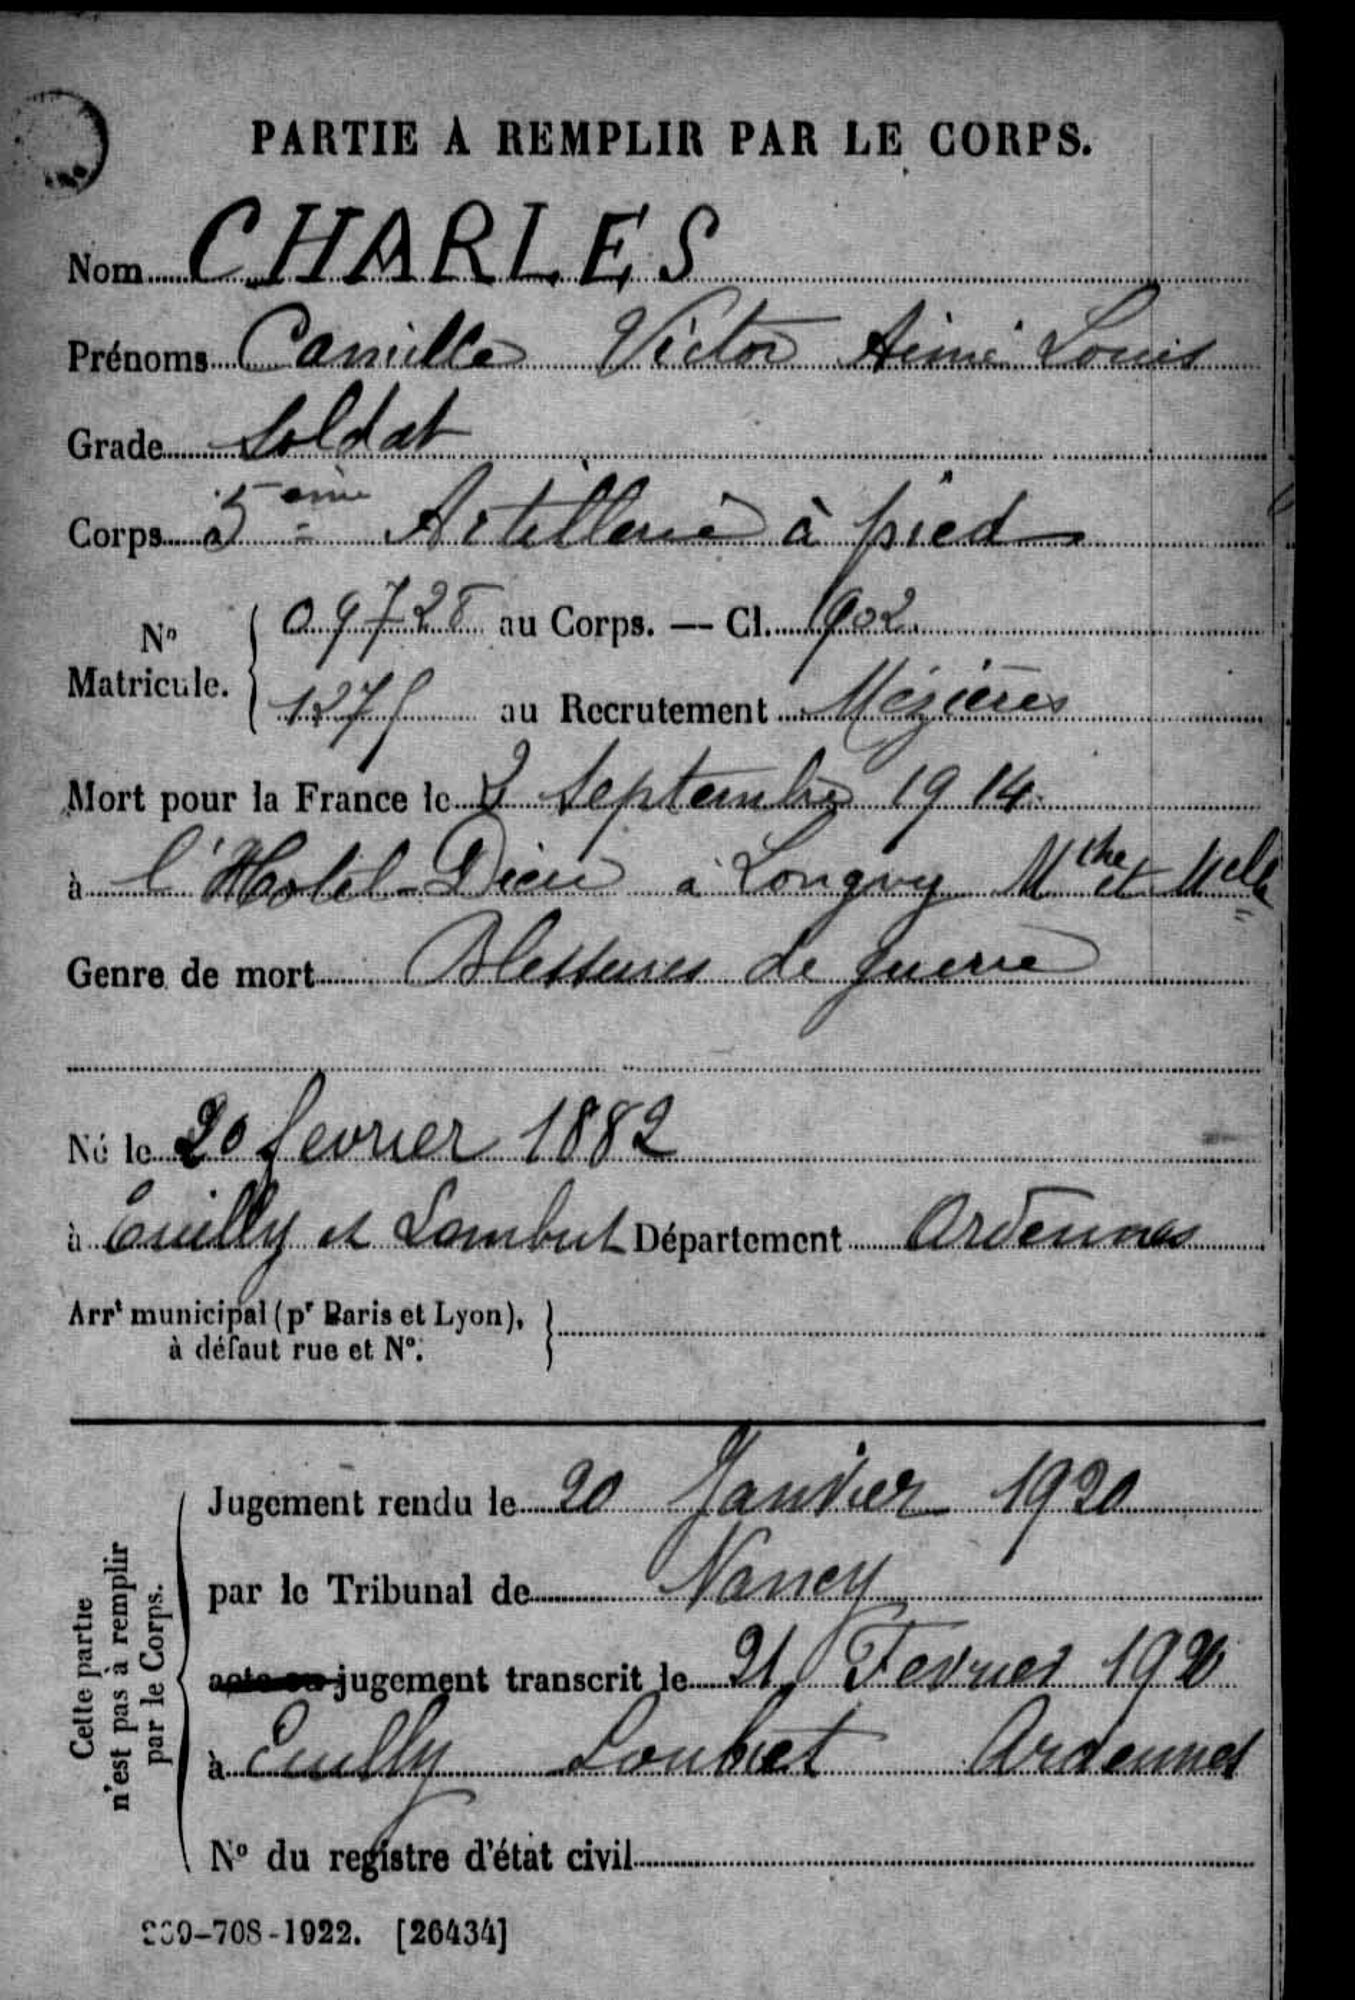 PARTIE À REMPLIR PAR LE CORPS.
Nom CHARLES
Prénoms Camille Victor Aimé Louis
Grade Soldat
Corps 5ème Artillerie à pied
No Matricule. { 09728 au Corps. — Cl. 1902
1275 au Recrutement Mézières
Mort pour la France le 2 Septembre 1914
à l'Hotel-Dieu à Longwy Mthe et Melle
Genre de mort Blessures de guerre
Né le 20 fevrier 1882
à Euilly et Lombut Département Ardennes
Arrt municipal (pr Paris et Lyon), à défaut rue et No. }
Cette partie n'est pas à remplir par le Corps.
Jugement rendu le 20 Janvier 1920
par le Tribunal de Nancy
acte ou jugement transcrit le 21 Fevrier 1920
à Euilly Loubut Ardennes
No du registre d'état civil
-708-1922. [26434]